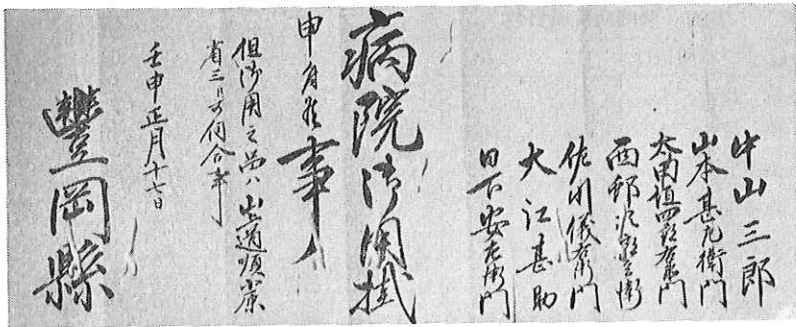 中山三郎
山本甚左衛門
太田垣四郎右衛門
西邨治郎兵衛
佐川儀右衛門
大江甚助
日下安左衛門
病院御用掛
申付候事
但御用之節ハ出
省三日可伺合事
壬申正月十七日
豐岡縣